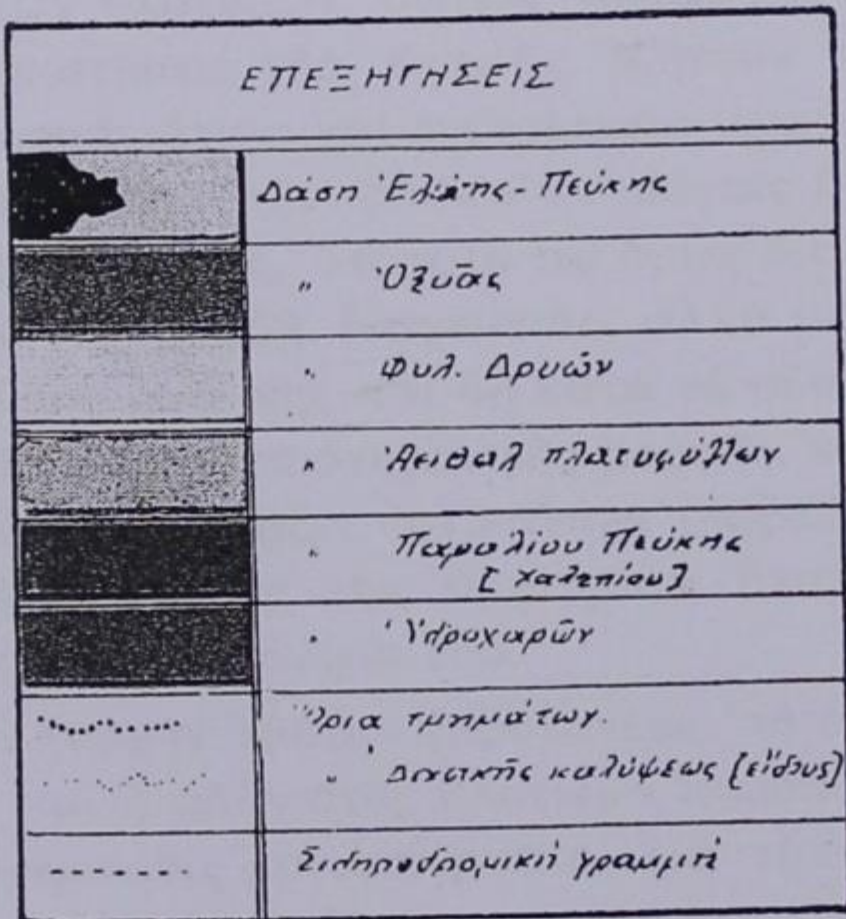 ΕΠΕΞΗΓΗΣΕΙΣ
Δάση Ἐλάτης - Πεύκης
" Ὀξυᾶς
" Φυλ. Δρυῶν
" Ἀειθαλ πλατυφύλλων
" Παραλίου Πεύκης
[Χαλεπίου]
" Ὑδροχαρῶν
Ὅρια τμημάτων.
" Δασικῆς καλύψεως [εἴδους]
Σιδηροδρομική γραμμή